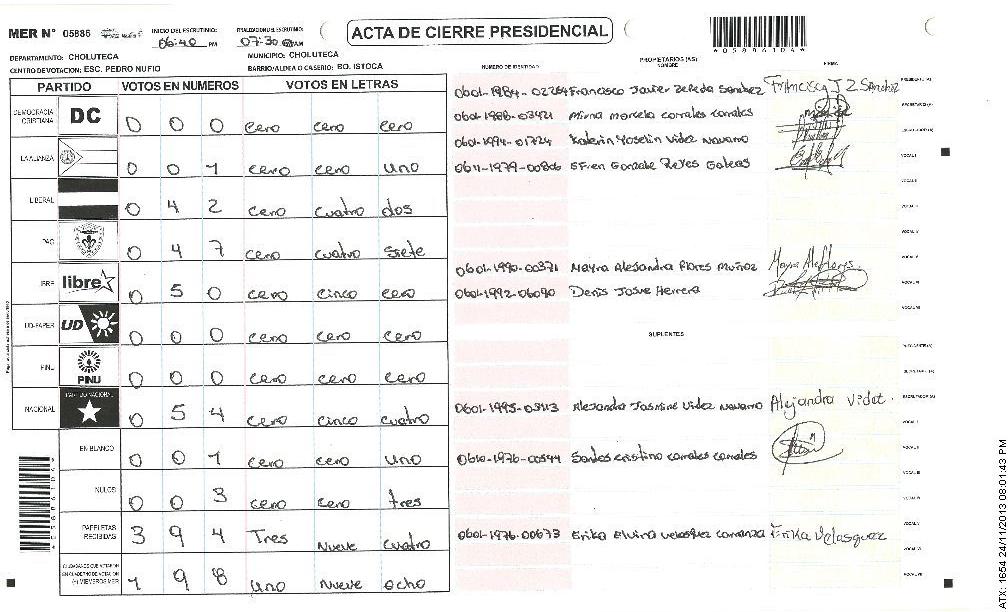 MER N° 05886
INICIO DEL ESCRUTINIO: 06:40 PM
FINALIZACION DEL ESCRUTINIO: 07:30 AM
ACTA DE CIERRE PRESIDENCIAL
*05886104*
DEPARTAMENTO: CHOLUTECA
MUNICIPIO: CHOLUTECA
CENTRO DE VOTACION: ESC. PEDRO NUFIO
BARRIO/ALDEA O CASERIO: BO. ISTOCA
PARTIDO VOTOS EN NUMEROS VOTOS EN LETRAS
DEMOCRACIA CRISTIANA DC 0 0 0 cero cero cero
LA ALIANZA 0 0 1 cero cero uno
LIBERAL 0 4 2 cero cuatro dos
PAC 0 4 7 cero cuatro siete
LIBRE libre 0 5 0 cero cinco cero
UD-FAPER UD 0 0 0 cero cero cero
PINU PINU 0 0 0 cero cero cero
NACIONAL PARTIDO NACIONAL 0 5 4 cero cinco cuatro
EN BLANCO 0 0 1 cero cero uno
NULOS 0 0 3 cero cero tres
PAPELETAS RECIBIDAS 3 9 4 Tres Nueve cuatro
CIUDADANOS QUE VOTARON EN CUADERNO DE VOTACION (+) MIEMBROS MER 1 9 8 uno Nueve ocho
NUMERO DE IDENTIDAD PROPIETARIOS (AS) NOMBRE FIRMA
0601-1984-02264 Francisco Javier Zepeda Sanchez Francisco J Z Sanchez PRESIDENTE (A)
0601-1988-03421 Mirna Marcela corrales corrales SECRETARIO (A)
0601-1994-01724 Katerin Yoselin Videz Navarro ESCRUTADOR (A)
0611-1979-00806 Efren Gonzalo Reyes Galeas VOCAL I
VOCAL II
VOCAL III
VOCAL IV
0601-1990-00371 Mayra Alejandra Flores Muñoz VOCAL V
0601-1992-06090 Denis Josue Herrera VOCAL VI
VOCAL VII
SUPLENTES
PRESIDENTE (A)
SECRETARIO (A)
0601-1995-03113 Alejandra Jasmine Videz Navarro Alejandra Videz. ESCRUTADOR (A)
VOCAL I
0610-1976-00544 Santos cristino corrales corrales VOCAL II
VOCAL III
VOCAL IV
0601-1976-00673 Erika Elvira Velasquez carranza Erika Velasquez VOCAL V
VOCAL VI
VOCAL VII
ATX: 1654 24/11/2013 08:01:43 PM